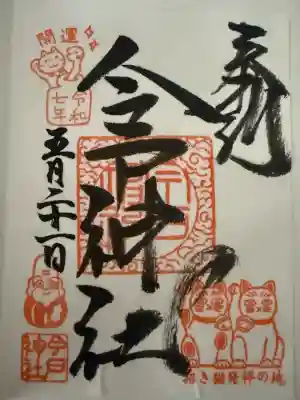 奉拝
今戸神社
開運
令和
七年
五月二十一日
今戸
神社
招き猫発祥の地